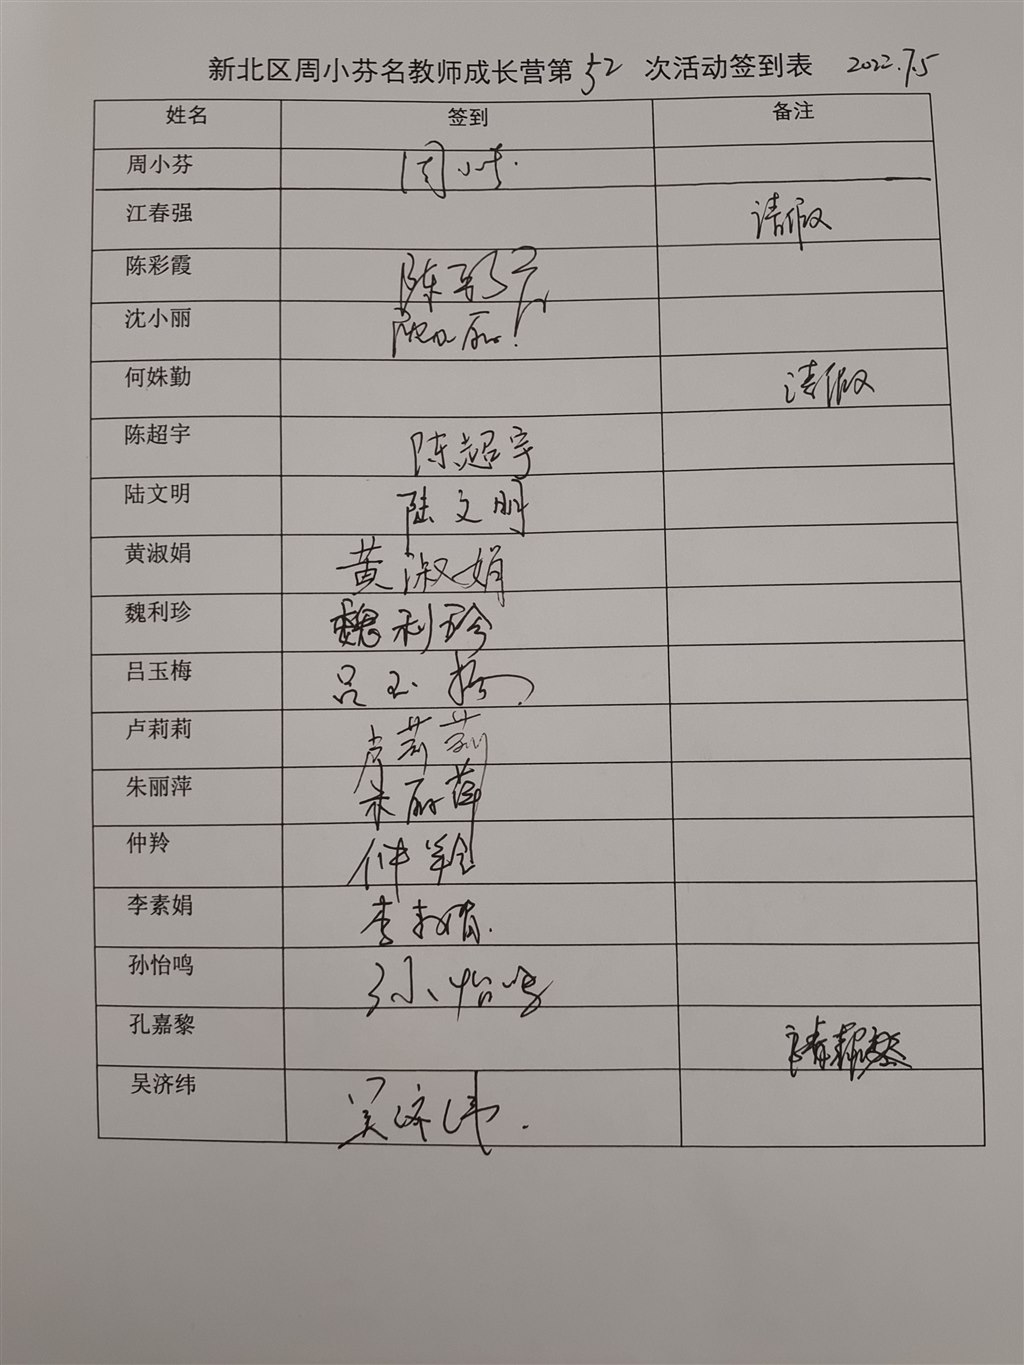 新北区周小芬名教师成长营第52次活动签到表 2022.7.5
姓名 签到 备注
周小芬 周小芬
江春强 请假
陈彩霞 陈彩霞
沈小丽 沈小丽
何姝勤 请假
陈超宇 陈超宇
陆文明 陆文明
黄淑娟 黄淑娟
魏利珍 魏利珍
吕玉梅 吕玉梅
卢莉莉 卢莉莉
朱丽萍 朱丽萍
仲羚 仲羚
李素娟 李素娟
孙怡鸣 孙怡鸣
孔嘉黎 请假
吴济纬 吴济纬